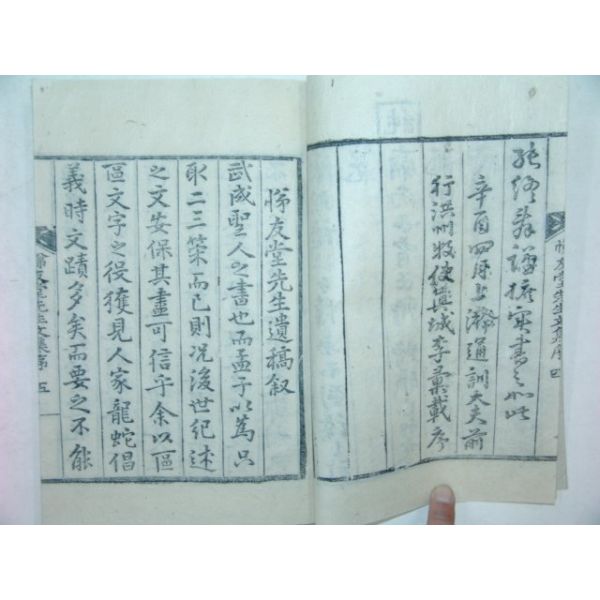 書之如此
辛酉四月上澣通訓大夫前
行洪州牧使興城李彙載序
悌友堂先生文集序 四
悌友堂先生遺稿叙
武成聖人之書也而孟子以爲只
取二三策而已則況後世紀述
之文安保其盡可信乎余以區
區文字之役獲見人家龍蛇倡
義時文蹟多矣而要之不能
悌友堂先生文集序 五